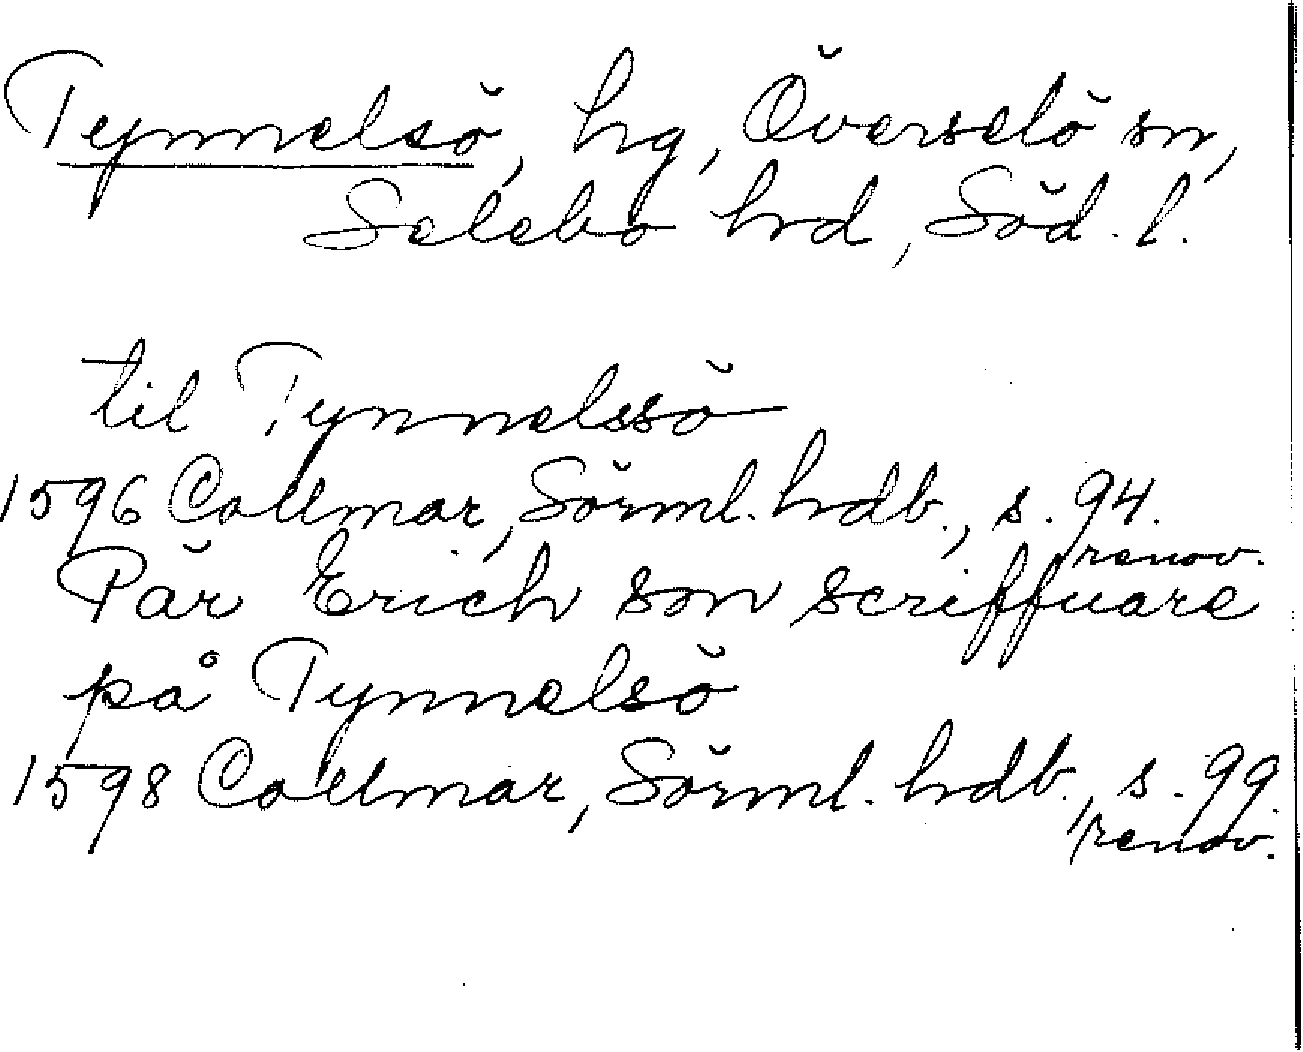 Tynnelsö, hg, Överselö sn,
Selebo hrd, Söd. l.
til Tynnelssö
1596 Collmar, Sörml. hdb., s. 94.
renov.
Pär Erich son scriffuare
på Tynnelsö
1598 Collmar, Sörml. hdb., s. 99.
renov.